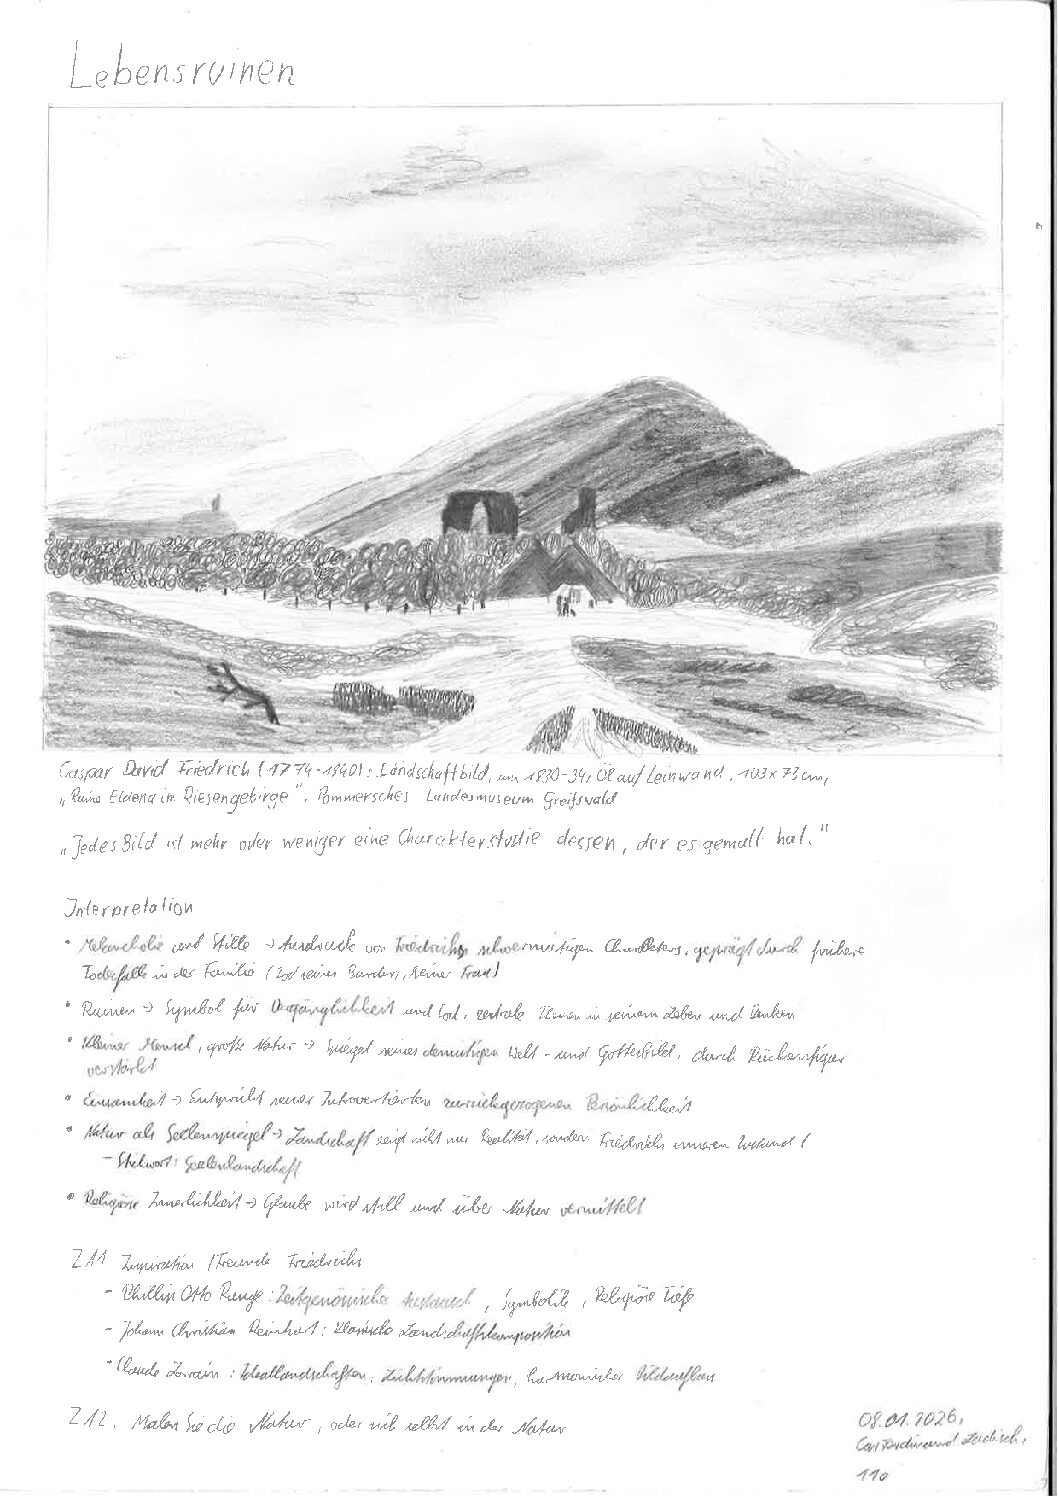 Lebensruinen
Caspar David Friedrich (1774-1840): Landschaftbild, um 1830-34, Öl auf Leinwand, 103 x 73 cm,
„Ruine Eldena im Riesengebirge". Pommersches Landesmuseum Greifswald
„Jedes Bild ist mehr oder weniger eine Charakterstudie dessen, der es gemalt hat."
Interpretation
• Melancholie und Stille → Ausdruck von Friedrichs schwermütigen Charakters, geprägt durch frühere
Todesfälle in der Familie (Tod seines Bruders, seiner Frau)
• Ruinen → Symbol für Vergänglichkeit und Tod, zentrale Themen in seinem Leben und Denken
• Kleiner Mensch, große Natur → Spiegel seines demütigen Welt- und Gottesbild, durch Rückenfigur
verstärkt
• Einsamkeit → Entspricht seiner Introvertierten zurückgezogenen Persönlichkeit
• Natur als Seelenspiegel → Landschaft zeigt nicht nur Realität, sondern Friedrichs inneren Zustand
- Stichwort: Seelenlandschaft
• Religiöse Innerlichkeit → Glaube wird still und über Natur vermittelt
Z11 Inspiration / Freunde Friedrichs
- Phillip Otto Runge: Zeitgenössischer Austausch, Symbolik, Religiöse Tiefe
- Johann Christian Reinhart: Klassische Landschaftskomposition
- Claude Lorrain: Ideallandschaften, Lichtstimmungen, harmonischer Bildaufbau
Z12. Malen Sie die Natur, oder sich selbst in der Natur
08.01.2026,
Carl Ferdinand
11a